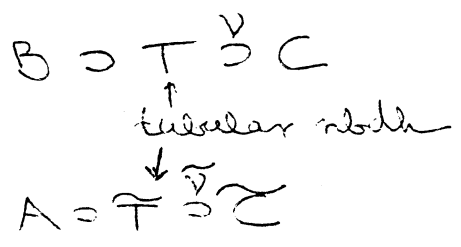 B ⊃ T ⊃^ν C
↑
tubular nbdh
↓
A ⊃ T̃ ⊃^ν̃ C̃